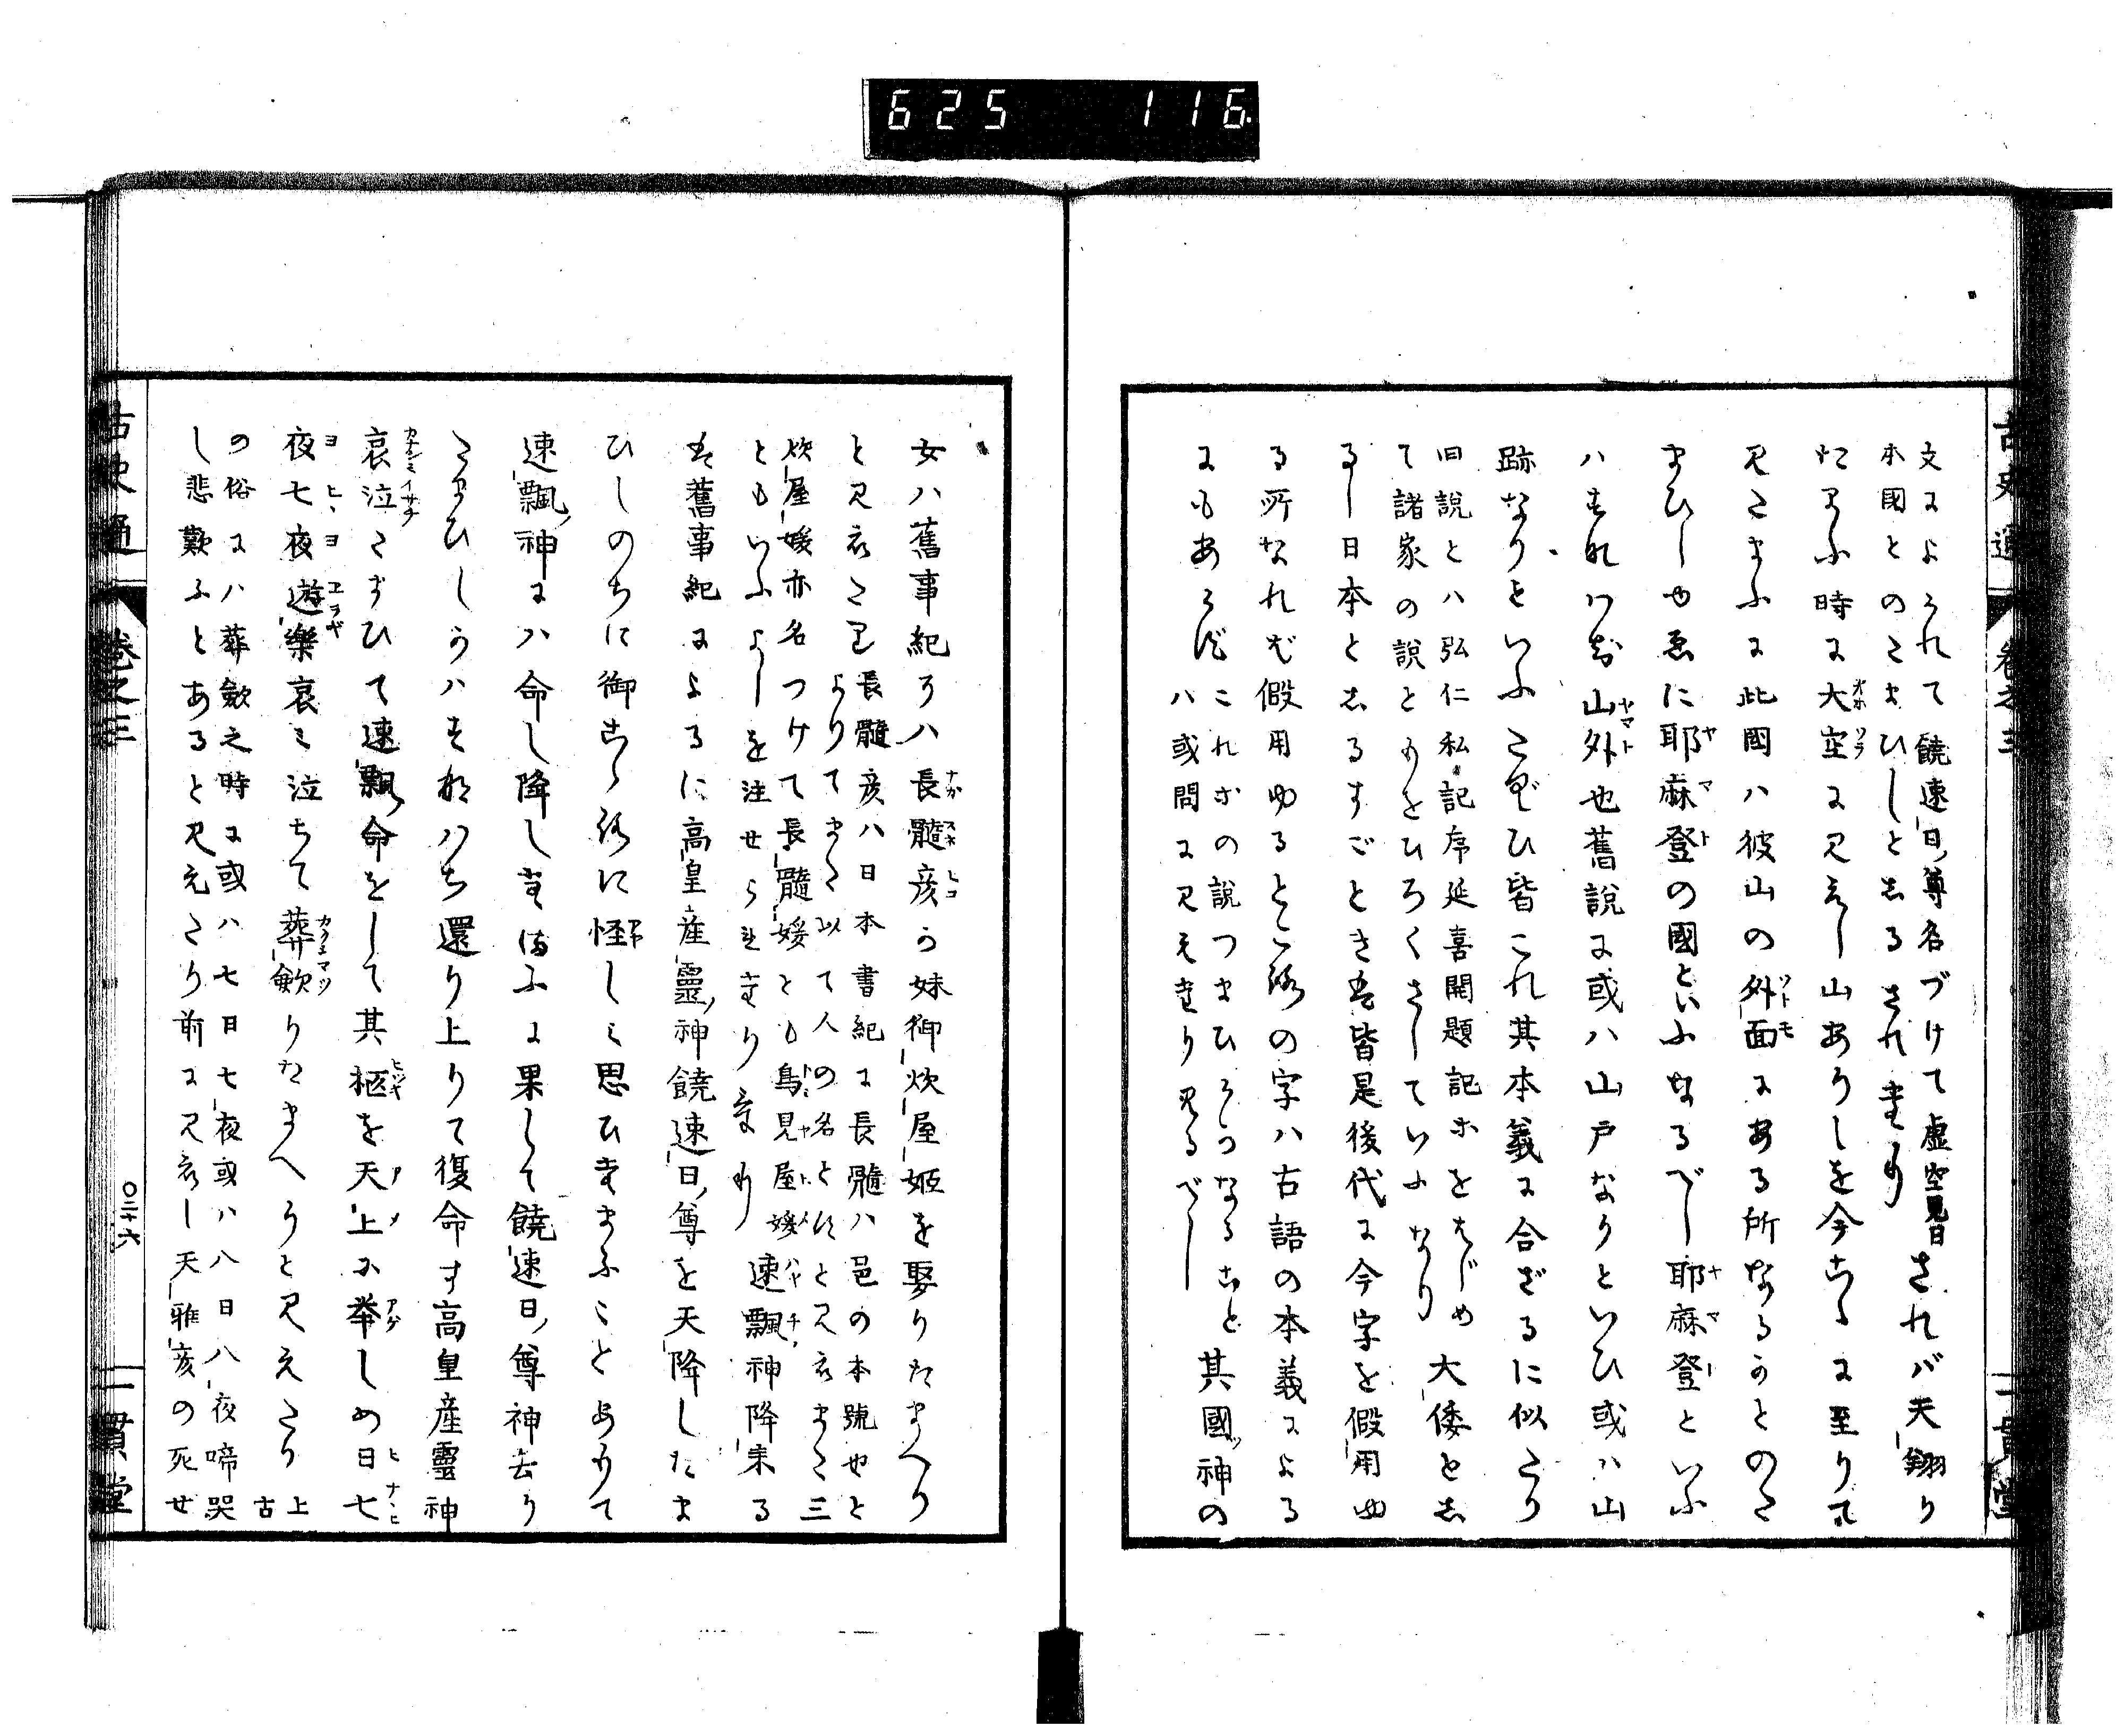 625 116.
古史通 卷之三 一貫堂
文によられて饒速日尊名づけて虚空見日
本國とのたまひしとしるされたり
されバ天翔り
たまふ時に大空に見えし山ありしを今こゝに至りて
見たまふに此國ハ彼山の外面にある所なるかとのた
まひしゆゑに耶麻登の國といふなるべし耶麻登といふ
ハすなハち山外也舊説に或ハ山戸なりといひ或ハ山
跡なりといふたぐひ皆これ其本義に合ざるに似たり
旧説とハ弘仁私記序延喜開題記ホをはじめ
て諸家の説どもをひろくさしていふなり
大倭としるし日本としるすごとき至皆是後代に今字を假用ゆ
る所なれバ假用ゆるところの字ハ古語の本義による
にもあらず
これホの説つまひらかなること
ハ或問に見えたり見るべし
其國神の
女ハ舊事紀にハ長髓彦か妹御炊屋姫を娶りたまへり
と見えたり
長髓彦ハ日本書紀に長髓ハ邑の本號也と
よりてまた以て人の名とすと見えまた三
炊屋媛亦名つけて長髓媛とも鳥見屋媛
ともいふよしを注せられたり
速飄神降来る
至舊事紀によるに高皇産靈神饒速日尊を天降したま
ひしのちに御こゝろに怪しミ思ひたまふことありて
速飄神にハ命し降したまふに果して饒速日尊神去り
たまひしかハすなハち還り上りて復命す高皇産靈神
哀泣たまひて速飄命をして其柩を天上に挙しめ日七
夜七夜遊樂哀ミ泣ちて葬斂りたまへりと見えたり
上古
の俗にハ葬斂之時に或ハ七日七夜或ハ八日八夜啼哭
し悲歎ふとあると見えたり前に見えし天雅彦の死せ
古史通 卷之三 〇三十六 一貫堂